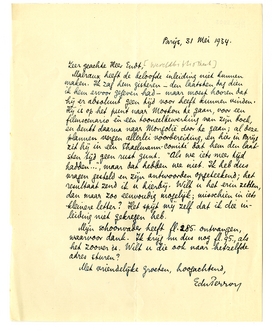 Parijs, 31 Mei 1934.
Zeer geachte Heer Endt,
Malraux heeft de beloofde inleiding niet kunnen
maken. Ik zag hem gisteren - den laatsten dag dien
ik hem ervoor gegeven had - maar moest hooren dat
hij er absoluut geen tijd voor heeft kunnen vinden.
Hij is op het punt naar Moskou te gaan, voor een
filmscenario en een tooneelbewerking van zijn boek,
en denkt daarna naar Mongolië door te gaan; al deze
plannen vergen allerlei voorbereiding, en hier in Parijs
zit hij in een Thaelmann-comité dat hem den laat-
sten tijd geen rust gunt. "Als we iets meer tijd
hadden..., maar dat hebben we niet. Ik heb dus
vragen gesteld en zijn antwoorden opgeteekend; het
resultaat zend ik u hierbij. Wilt u het erin zetten,
dan maar zoo eenvoudig mogelijk; misschien in iets
kleinere letter? Het spijt mij zelf dat ik die in-
leiding niet gekregen heb.
Mijn schoonvader heeft fl. 285 ontvangen,
waarvoor dank. Ik krijg nu dus nog fl. 95, als
het zoover is. Wilt u die ook naar hetzelfde
adres sturen?
Met vriendelijke groeten, hoogachtend,
EduPerron